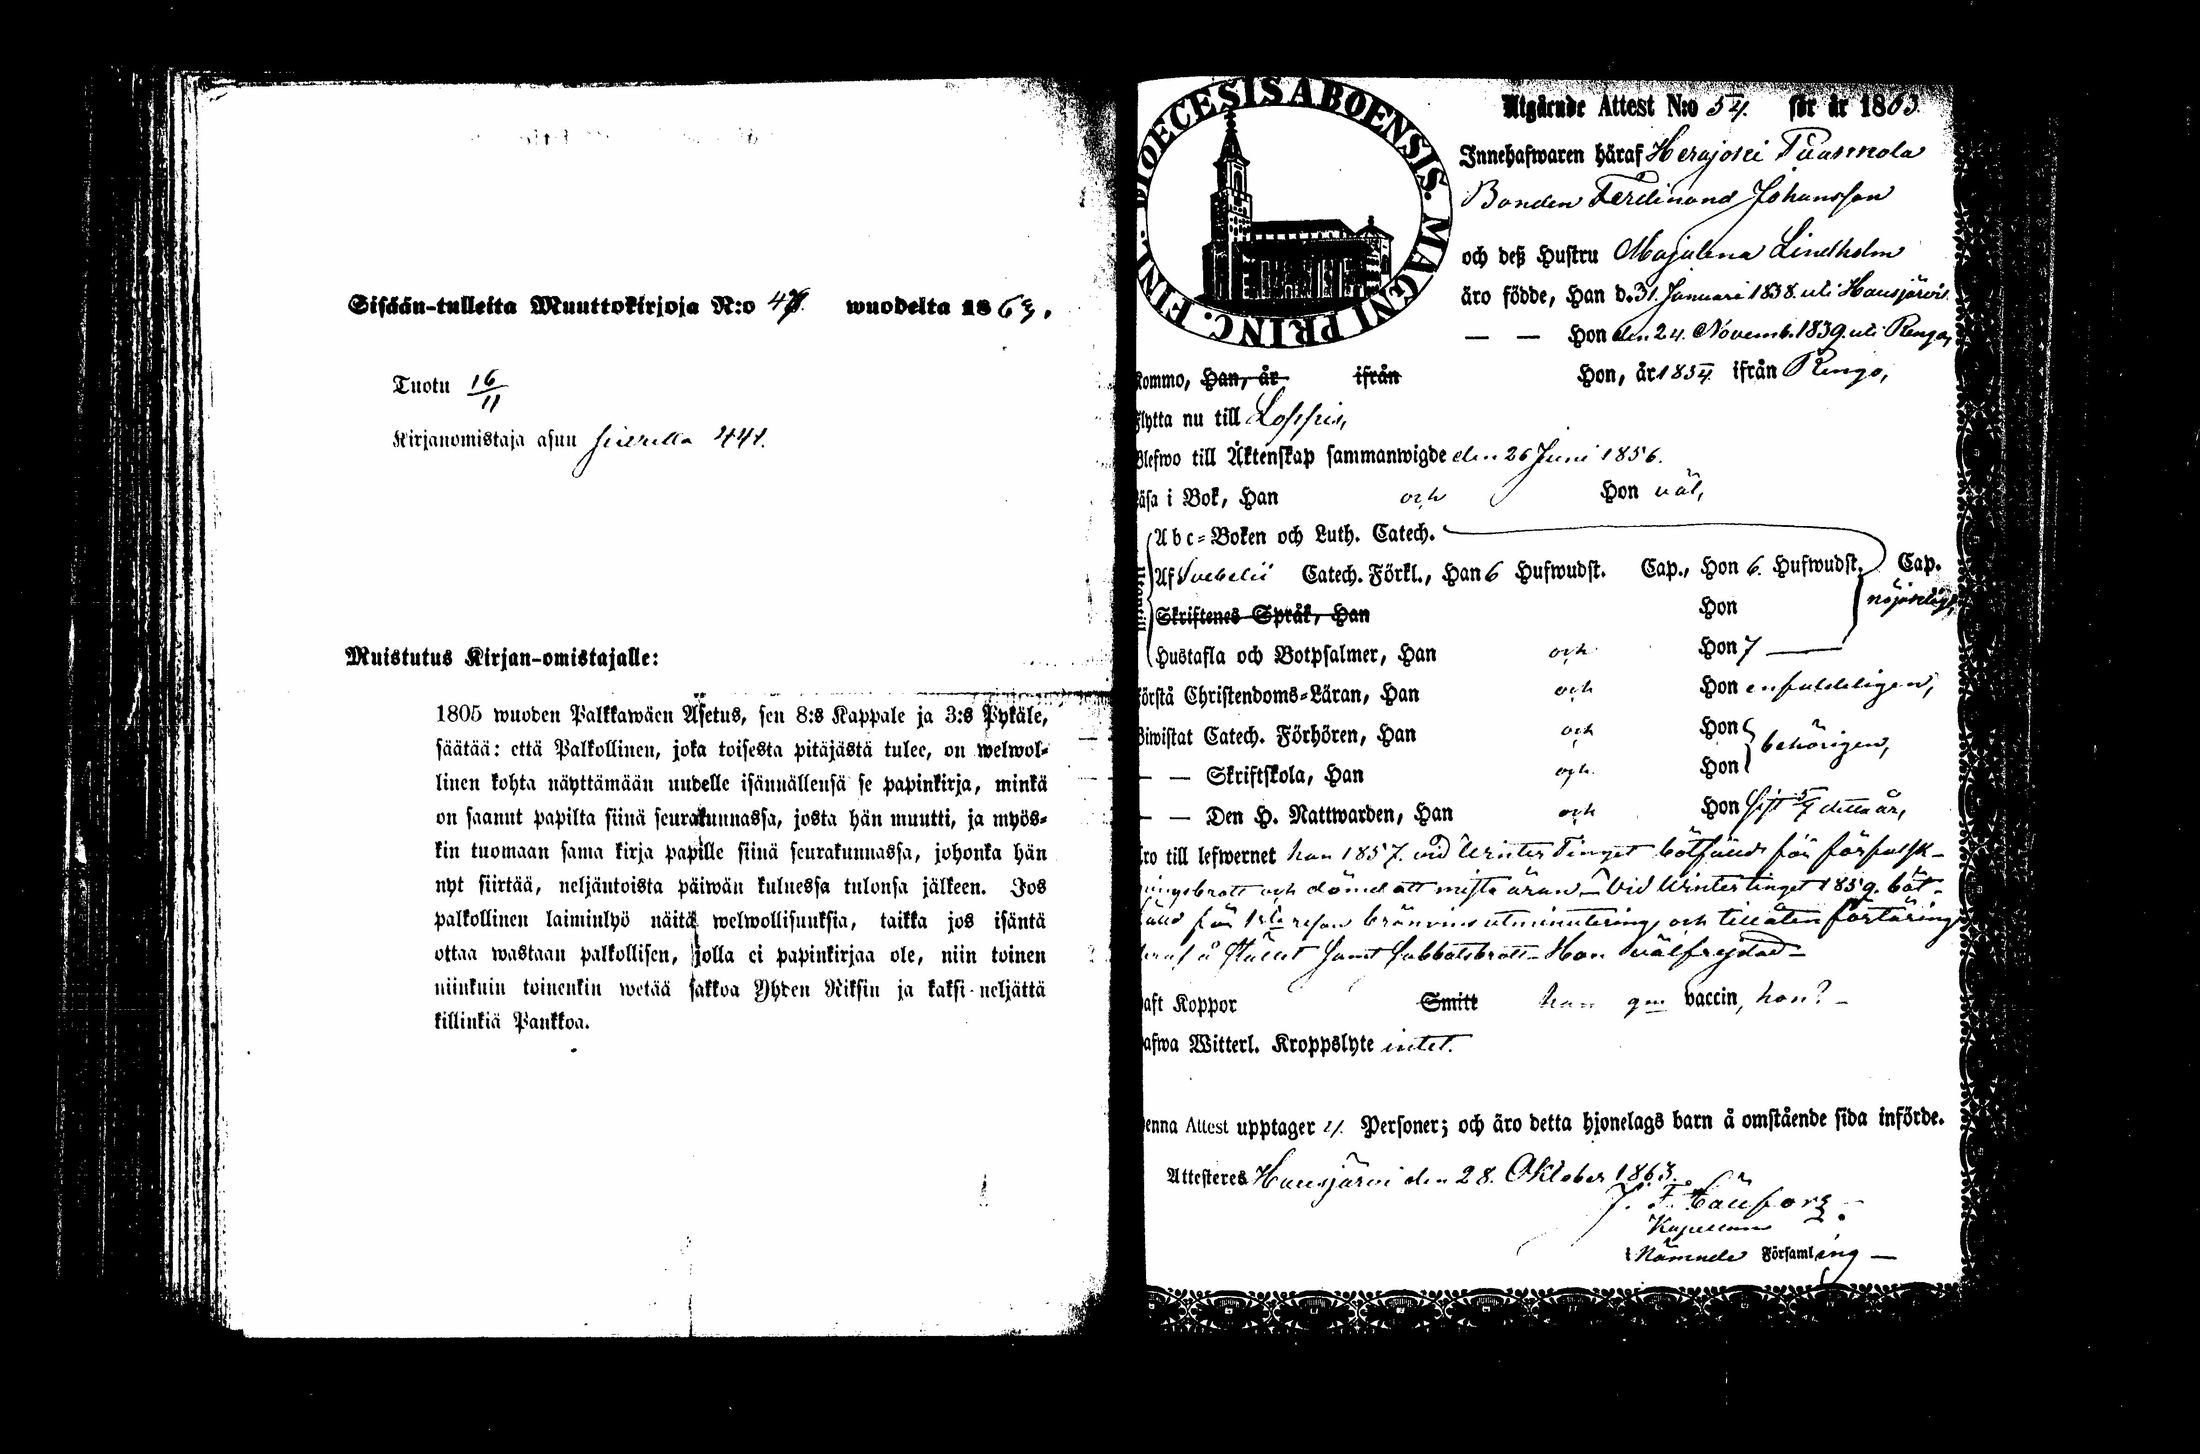 Sisään-tulleita Muuttokirjoja N:o 47. wuodelta 1863.
Tuotu 16/11
Kirjanomistaja asuu sivulla 441.
Muistutus Kirjan-omistajalle:
1805 wuoden Palkkawäen Asetus, sen 8:s Kappale ja 3:s Pykäle,
säätää: että Palkollinen, joka toisesta pitäjästä tulee, on welwol-
linen kohta näyttämään uudelle isännällensä se papinkirja, minkä
on saanut papilta siinä seurakunnassa, josta hän muutti, ja myös-
kin tuomaan sama kirja papille siinä seurakunnassa, johonka hän
nyt siirtää, neljäntoista päiwän kuluessa tulonsa jälkeen. Jos
palkollinen laiminlyö näitä welwollisuuksia, taikka jos isäntä
ottaa wastaan palkollisen, jolla ei papinkirjaa ole, niin toinen
niinkuin toinenkin wetää sakkoa Yhden Riksin ja kaksi-neljättä
killinkiä Pankkoa.
DIOECESIS ABOENSIS. MAGNI PRINC. FINL.
Utgående Attest N:o 54. för år 1863.
Innehafwaren häraf Herajoki
Bonden Ferdinand Johansson
och deß Hustru Majalena Lindholm
äro födde, Han d. 31. Januari 1838. uti Hausjärvi.
— — Hon den 24. Novemb. 1839. uti Rengo,
kommo, Han, år ifrån Hon, år 1854. ifrån Rengo,
flytta nu till Loppis,
Blefwo till Äktenskap sammanwigde den 26 Juni 1856.
Läsa i Bok, Han och Hon väl,
Utantill
Abc-Boken och Luth. Catech.
Af Svebelii Catech. Förkl., Han 6 Hufwudst. Cap., Hon 6. Hufwudst. Cap.
Skriftenes Språk, Han Hon nöjaktigt,
Hustafla och Botpsalmer, Han och Hon 7
förstå Christendoms-Läran, Han och Hon enfaldeligen,
Biwistat Catech. Förhören, Han och Hon behörigen,
— — Skriftskola, Han och Hon
— — Den H. Nattwarden, Han och Hon sist detta år,
äro till lefwernet han 1857. vid Winter Tinget botfäld för förfalsk-
ningsbrott och dömd att mista äran — Vid Winter tinget 1859. böt-
fäld för 1sta resan bränvins utminutering och tillåten förtäring
deraf å stället samt sabbatsbrott — Hon välfrejdad —
haft Koppor Smitt han gm vaccin, hon? —
hafwa Witterl. Kroppslyte intet.
Denna Attest upptager 4. Personer; och äro detta hjonelags barn å omstående sida införde.
Attesteres Hausjärvi den 28. Oktober 1863.
Kapellan
i Nämnde Församling —